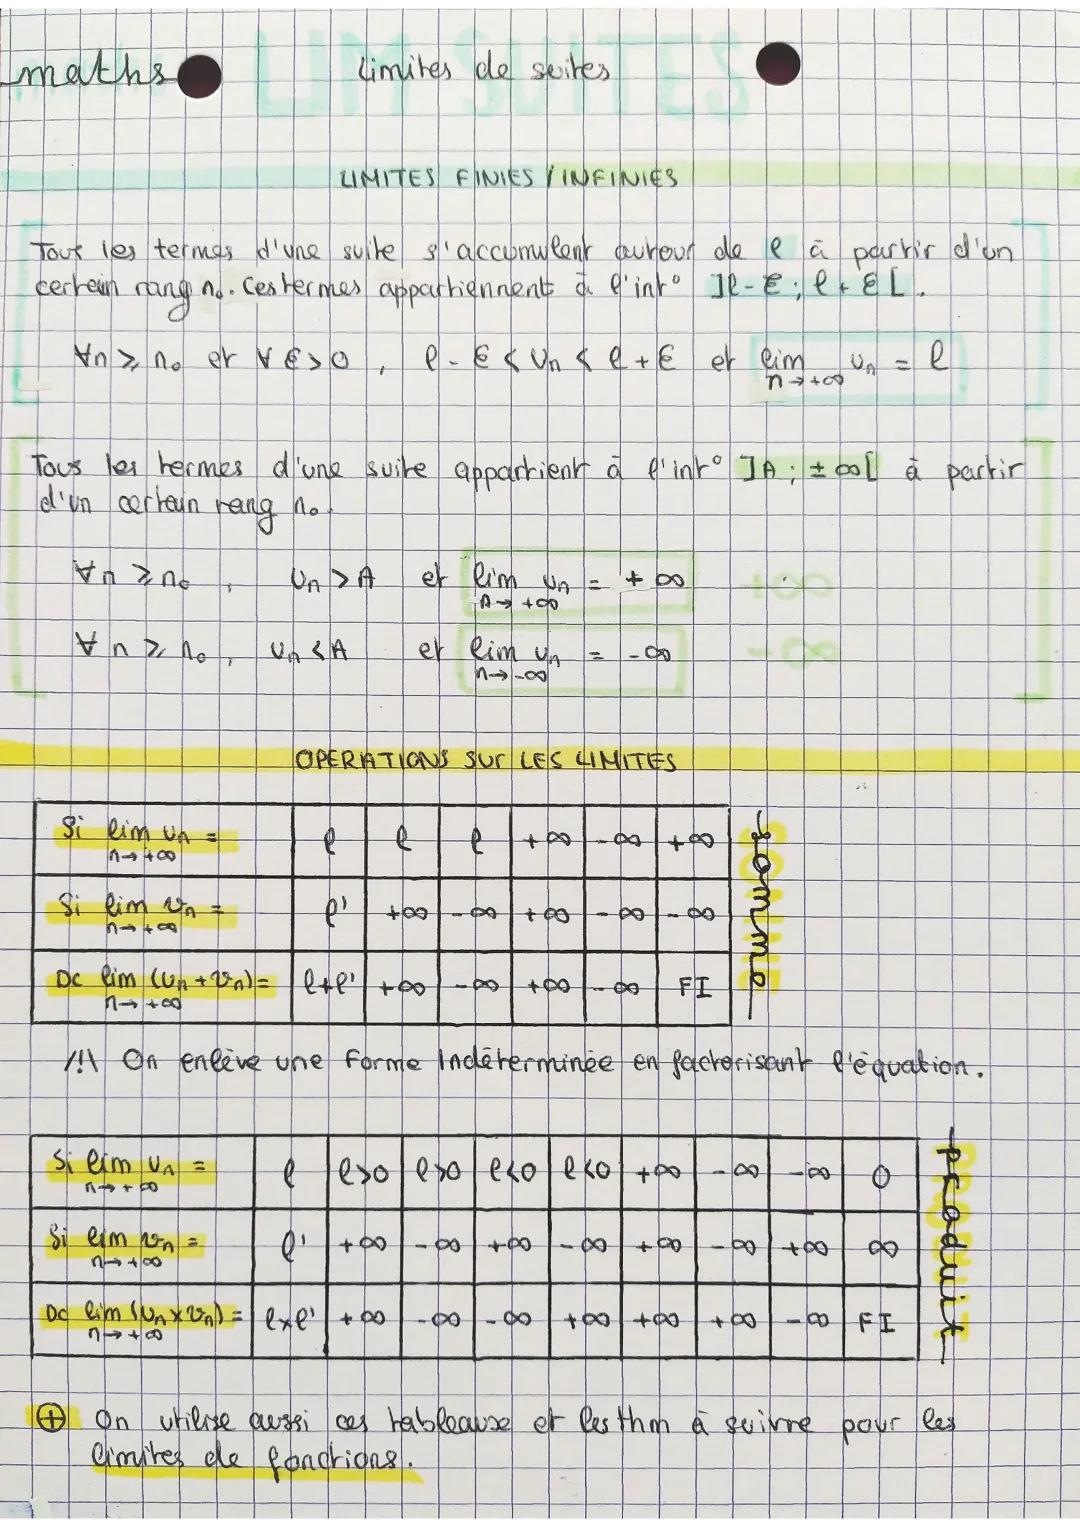 maths
Limites de suites
LIM SUITES
LIMITES FINIES / INFINIES
Tout les termes d'une suite s'accumulent autour de ℓ à partir d'un
certain rang n₀. Ces termes appartiennent à l'int° ]ℓ-Ɛ ; ℓ+Ɛ[.
∀n ⩾ n₀ et ∀ Ɛ>0 , ℓ-Ɛ < Un < ℓ+Ɛ et lim Un = ℓ
n→+∞
Tous les termes d'une suite appartient à l'int° ]A ; ±∞[ à partir
d'un certain rang n₀.
∀n ⩾ n₀ , Un > A et lim Un = +∞
A→ +∞
+∞
∀ n ⩾ n₀ , Un < A et lim Un = -∞
n→-∞
-∞
OPERATIONS SUR LES LIMITES
Si lim Un = ℓ ℓ ℓ +∞ -∞ +∞
n→+∞
Si lim Vn = ℓ' +∞ -∞ +∞ -∞ -∞
n→+∞
Dc lim (Un + Vn) = ℓ+ℓ' +∞ -∞ +∞ -∞ FI
n→+∞
somme
/!\ On enlève une Forme Indéterminée en factorisant l'équation.
Si lim Un = ℓ ℓ>0 ℓ>0 ℓ<0 ℓ<0 +∞ -∞ -∞ 0
n→+∞
Si lim Vn = ℓ' +∞ -∞ +∞ -∞ +∞ -∞ +∞ ∞
n→+∞
Dc lim (Un × Vn) = ℓ×ℓ' +∞ -∞ -∞ +∞ +∞ +∞ -∞ FI
n→+∞
produit
⊕ On utilise aussi ces tableaux et les thm à suivre pour les
limites de fonctions.